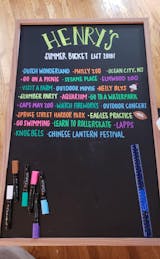 HENRY'S
SUMMER BUCKET LIST 2018!
•DUTCH WONDERLAND •PHILLY ZOO •OCEAN CITY, NJ
•GO ON A PICNIC •SESAME PLACE •ELMWOOD ZOO
•VISIT A FARM •OUTDOOR MOVIE •NELLY BLYS
•SLUMBER PARTY •AQUARIUM •GO TO A WATERPARK
•CAPE MAY ZOO •WATCH FIREWORKS •OUTDOOR CONCERT
•SPRUCE STREET HARBOR PARK •EAGLES PRACTICE
•GO SWIMMING •LEARN TO ROLLERSKATE •LAPPS
•KNOEBELS •CHINESE LANTERN FESTIVAL